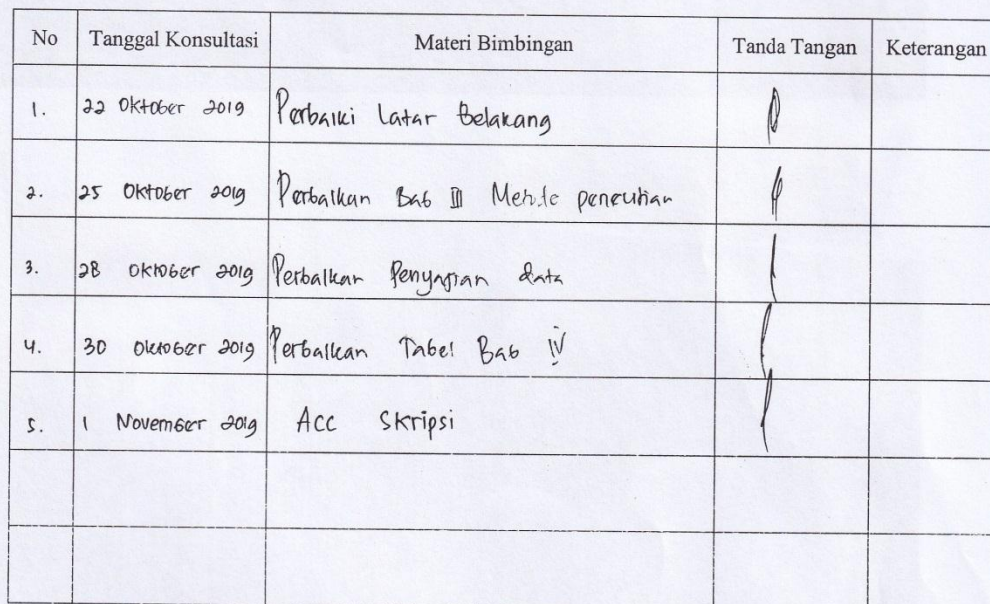 No Tanggal Konsultasi Materi Bimbingan Tanda Tangan Keterangan
1. 22 Oktober 2019 Perbaiki Latar Belakang
2. 25 Oktober 2019 Perbaikan Bab III Metode penelitian
3. 28 Oktober 2019 Perbaikan Penyajian data
4. 30 Oktober 2019 Perbaikan Tabel Bab IV
5. 1 November 2019 Acc Skripsi